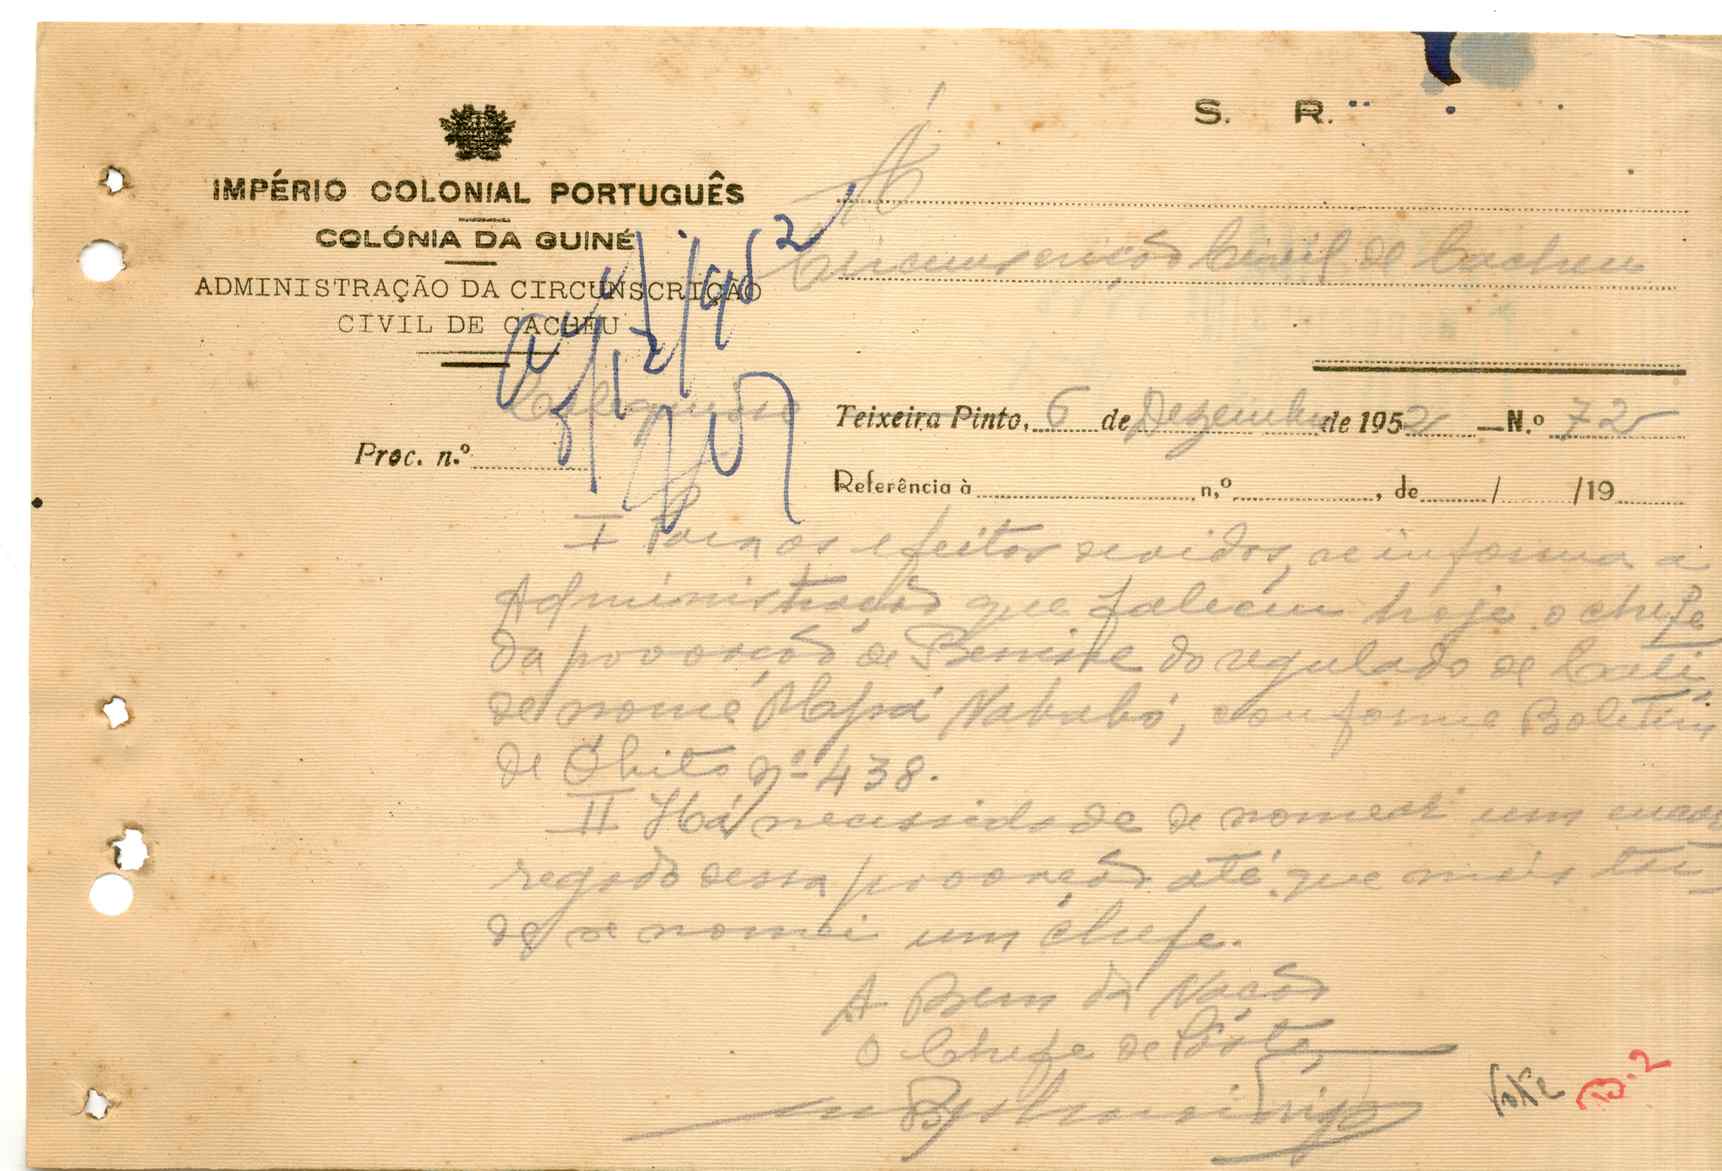 S. R.
IMPÉRIO COLONIAL PORTUGUÊS
COLÓNIA DA GUINÉ
ADMINISTRAÇÃO DA CIRCUNSCRIÇÃO
CIVIL DE CACHEU
À
Circunscrição Civil de Cacheu
Teixeira Pinto, 6 de Dezembro de 1952 — N.º 72
Proc. n.º
Referência à n.º , de / /19
I Para os efeitos devidos, se informa a
Administração que faleceu hoje o chefe
da povoação de do regulado de
de nome Nababó, conforme Boletim
de Óbito nº 438.
II Há necessidade de nomear um encar
regado dessa povoação até que mais tar-
de se nomei um chefe.
A Bem da Nação
O Chefe de Pôsto,